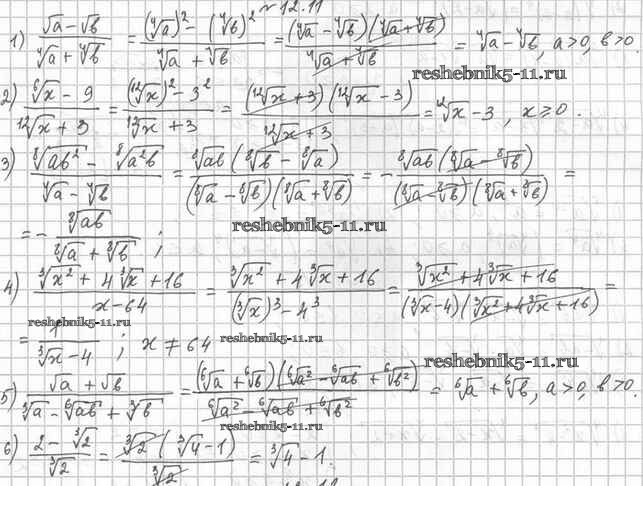 № 12.11
1) (√a − √b)/(⁴√a + ⁴√b) = ((⁴√a)² − (⁴√b)²)/(⁴√a + ⁴√b) = ((⁴√a − ⁴√b)(⁴√a + ⁴√b))/(⁴√a + ⁴√b) = ⁴√a − ⁴√b, a>0, b>0.
reshebnik5-11.ru
2) (⁶√x − 9)/(¹²√x + 3) = ((¹²√x)² − 3²)/(¹²√x + 3) = ((¹²√x + 3)(¹²√x − 3))/(¹²√x + 3) = ¹²√x − 3, x ⩾ 0.
3) (⁸√ab² − ⁸√a²b)/(⁴√a − ⁴√b) = (⁸√ab(⁸√b − ⁸√a))/((⁸√a − ⁸√b)(⁸√a + ⁸√b)) = −(⁸√ab(⁸√a − ⁸√b))/((⁸√a − ⁸√b)(⁸√a + ⁸√b)) =
= −(⁸√ab)/(⁸√a + ⁸√b);
reshebnik5-11.ru
4) (³√x² + 4³√x + 16)/(x − 64) = (³√x² + 4³√x + 16)/((³√x)³ − 4³) = (³√x² + 4³√x + 16)/((³√x − 4)(³√x² + 4³√x + 16)) =
reshebnik5-11.ru
= 1/(³√x − 4); x ≠ 64
reshebnik5-11.ru
reshebnik5-11.ru
5) (√a + √b)/(³√a − ⁶√ab + ³√b) = ((⁶√a + ⁶√b)(⁶√a² − ⁶√ab + ⁶√b²))/(⁶√a² − ⁶√ab + ⁶√b²) = ⁶√a + ⁶√b, a>0, b>0.
reshebnik5-11.ru
6) (2 − ³√2)/(³√2) = (³√2(³√4 − 1))/(³√2) = ³√4 − 1.